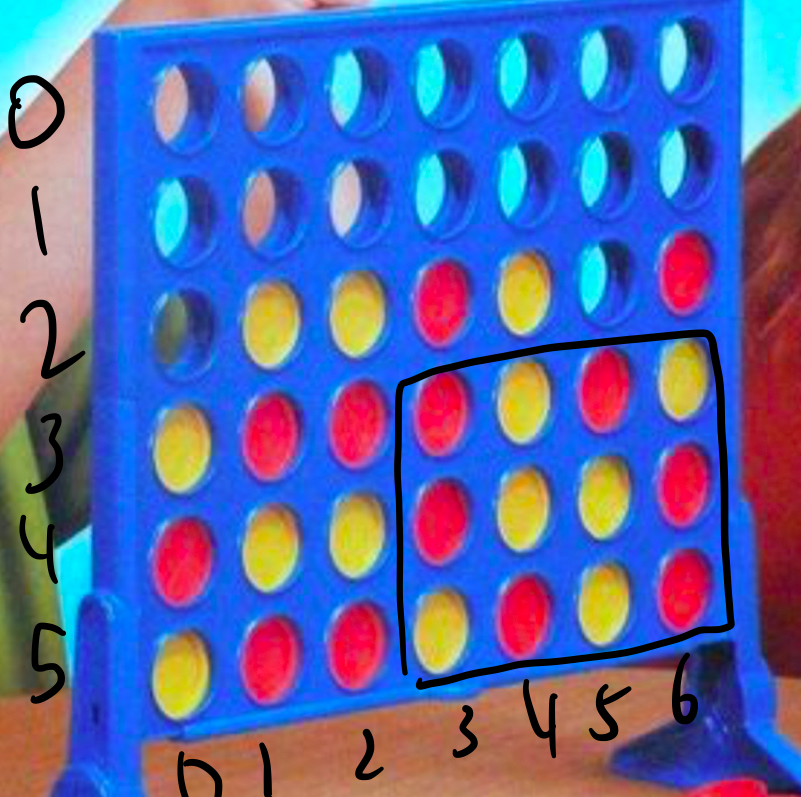 0
1
2
3
4
5
0 1 2 3 4 5 6